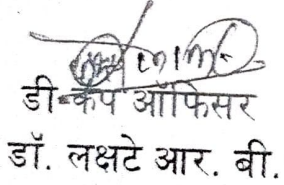 डी कॅप ऑफिसर
डॉ. लक्षटे आर. बी.